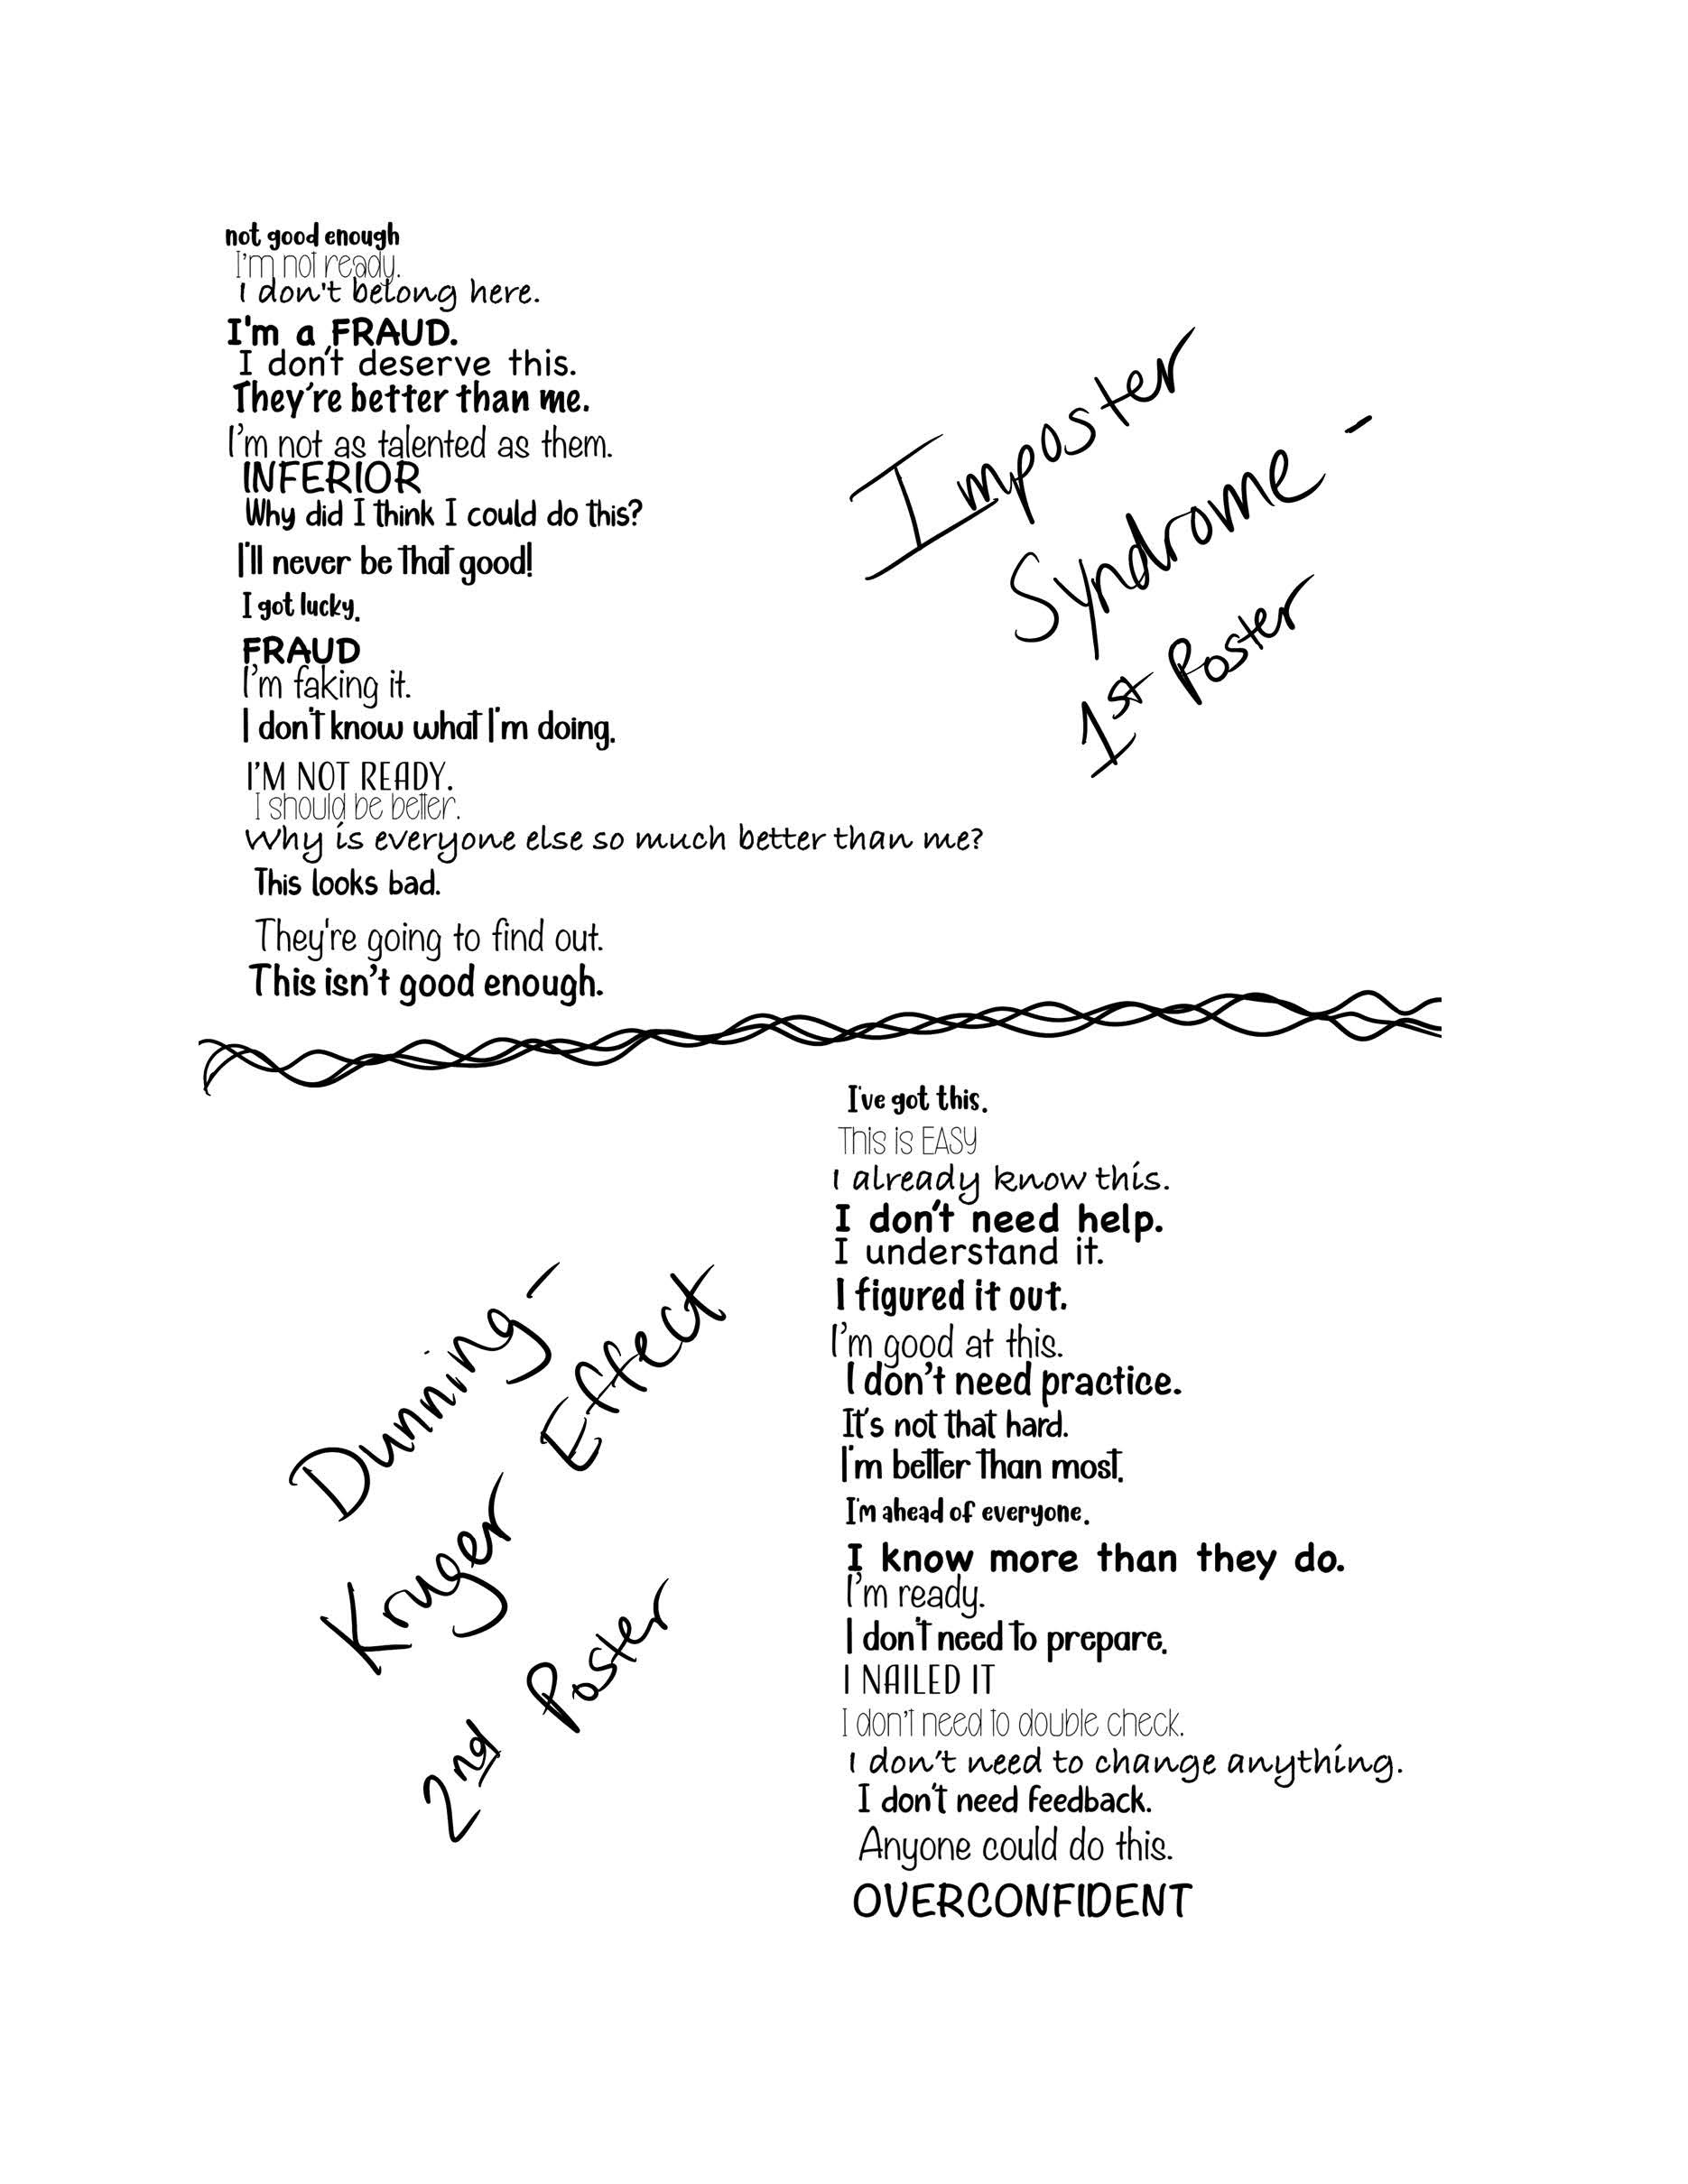 not good enough
I'm not ready.
I don't belong here.
I'm a FRAUD.
I don't deserve this.
They're better than me.
I'm not as talented as them.
INFERIOR
Why did I think I could do this?
I'll never be that good!
I got lucky.
FRAUD
I'm faking it.
I don't know what I'm doing.
I'M NOT READY.
I should be better.
Why is everyone else so much better than me?
This looks bad.
They're going to find out.
This isn't good enough.
Imposter
Syndrome -
1st Poster
Dunning -
Kruger Effect
2nd Poster
I've got this.
This is EASY
I already know this.
I don't need help.
I understand it.
I figured it out.
I'm good at this.
I don't need practice.
It's not that hard.
I'm better than most.
I'm ahead of everyone.
I know more than they do.
I'm ready.
I don't need to prepare.
I NAILED IT
I don't need to double check.
I don't need to change anything.
I don't need feedback.
Anyone could do this.
OVERCONFIDENT